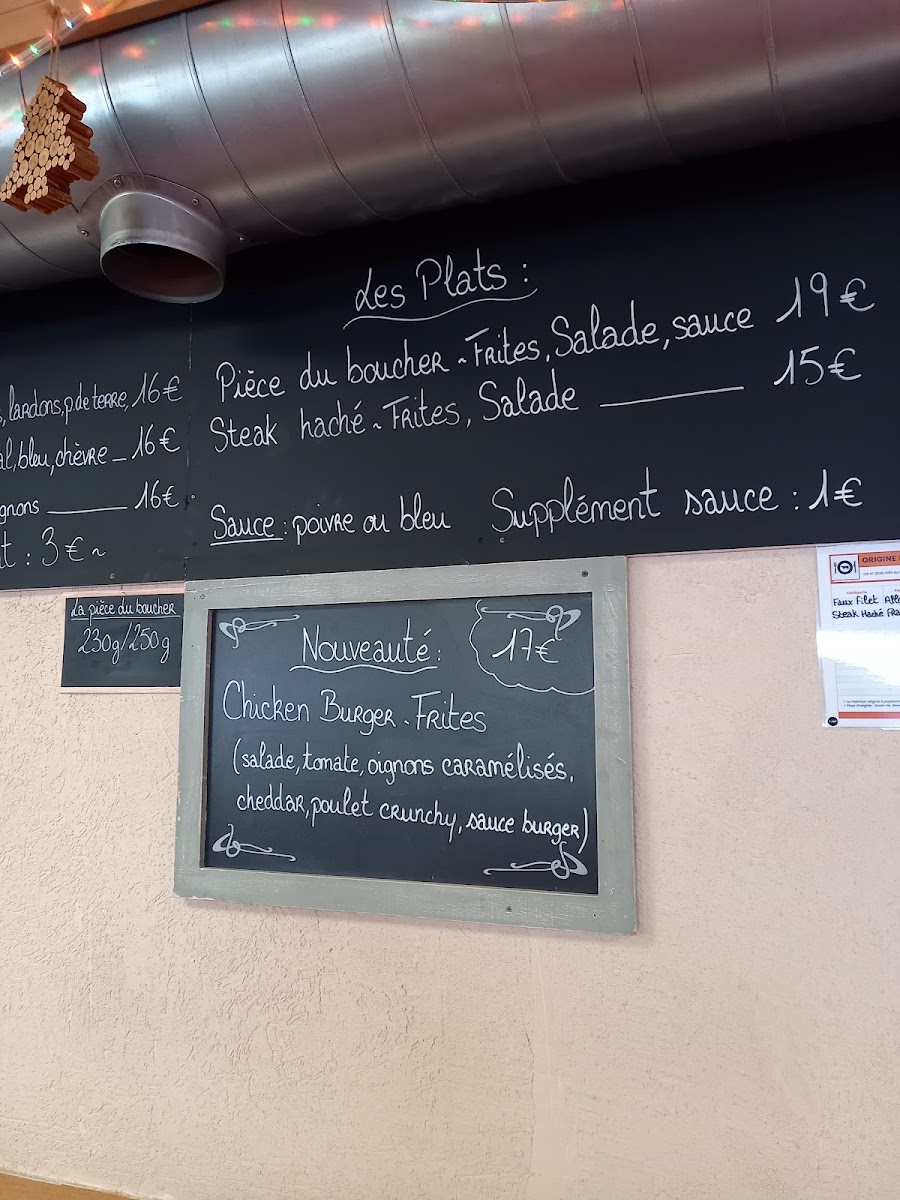 lardons, p. de terre, 16€
bleu, chèvre _ 16€
16€
: 3€ ~
Les Plats :
Pièce du boucher ~ Frites, Salade, sauce 19€
Steak haché ~ Frites, Salade 15€
Sauce : poivre ou bleu Supplément sauce : 1€
La pièce du boucher
230g/250g
Nouveauté : 17€
Chicken Burger - Frites
(salade, tomate, oignons caramélisés,
cheddar, poulet crunchy, sauce burger)
ORIGINE
Faux Filet
Steak Haché